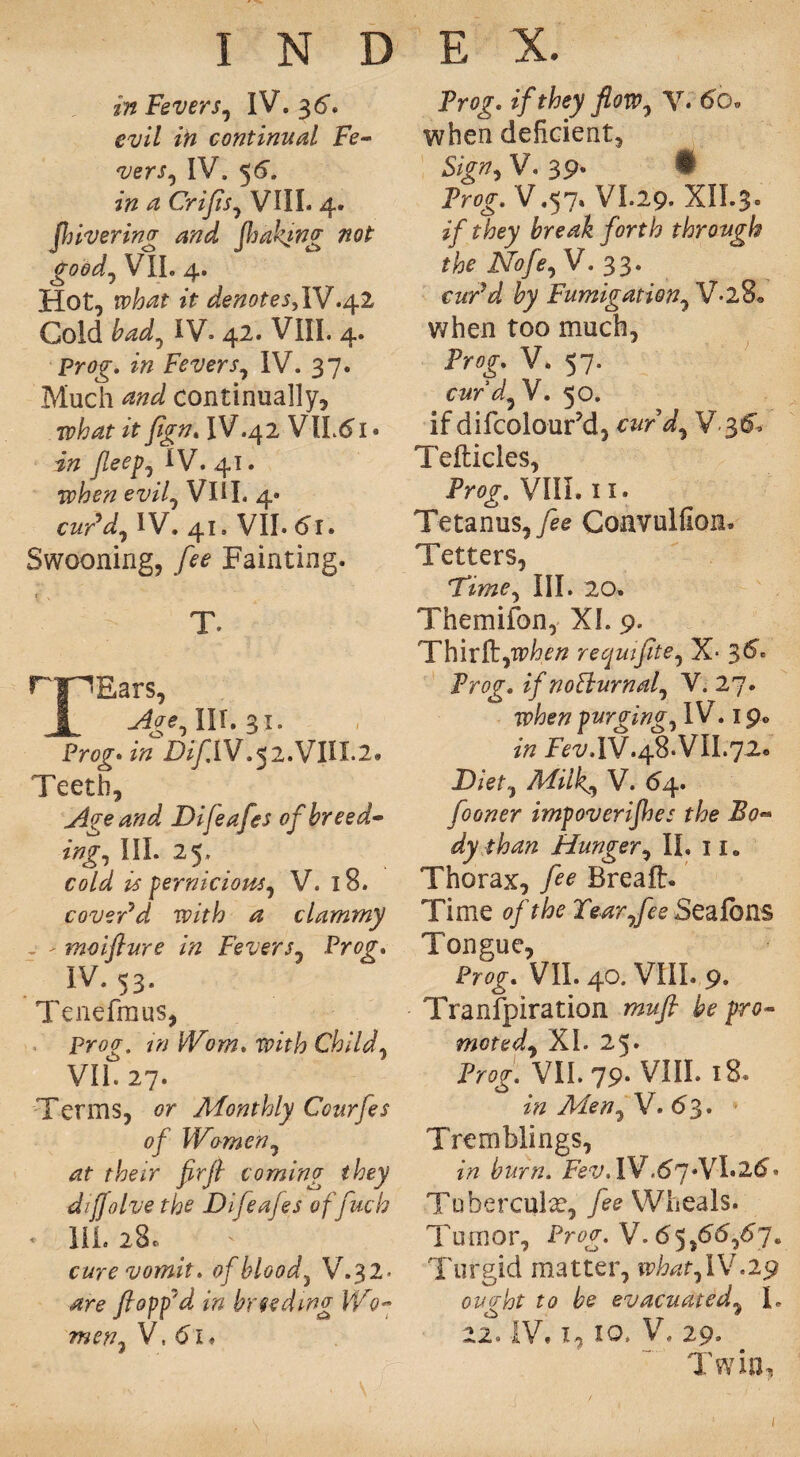 I N D E X.
in Fevers, IV. 36.
evil in continual Fe-
vers, IV. 56.
in a Crisis, VIII. 4.
ſhivering and ſhaking not
good, VII. 4.
Hot, what it denotes, IV.42
Cold bad, IV. 42. VIII. 4.
Prog. in Fevers, IV. 37.
Much and continually,
what it ſign. IV.42 VII.61.
in ſleep, IV. 41.
when evil, VIII. 4.
cur'd, IV. 41. VII. 61.
Swooning, ſee Fainting.
T.
TEars,
Age, III. 31.
Prog. in Diſ.IV.52.VIII.2.
Teeth,
Age and Diſeaſes of breed-
ing, III. 25.
cold is pernicious, V. 18.
cover'd with a clammy
moiſture in Fevers, Prog.
IV. 53.
Teneſmus,
Prog. in Wom. with Child,
VII. 27.
Terms, or Monthly Courſes
of Women,
at their firſt coming they
diſſolve the Diſeaſes of ſuch
III. 28.
cure vomit. of blood, V.32.
are ſtopp'd in breeding Wo-
men, V. 61.
Prog. if they flow, V. 60.
when deficient,
Sign, V. 39.
Prog. V.57. VI.29. XII.3.
if they break forth through
the Noſe, V. 33.
cur'd by Fumigation, V.28.
when too much,
Prog. V. 57.
cur'd, V. 50.
if diſcolour'd, cur'd, V.36.
Teſticles,
Prog. VIII. 11.
Tetanus, ſee Convulſion.
Tetters,
Time, III. 20.
Themiſon, XI. 9.
Thirſt, when requiſite, X. 36.
Prog. if nocturnal, V. 27.
when purging, IV. 19.
in Fev.IV.48.VII.72.
Diet, Milk, V. 64.
ſooner impoveriſhes the Bo-
dy than Hunger, II. 11.
Thorax, ſee Breaſt.
Time of the Year, ſee Seaſons
Tongue,
Prog. VII. 40. VIII. 9.
Tranſpiration muſt be pro-
moted, XI. 25.
Prog. VII. 79. VIII. 18.
in Men, V. 63.
Tremblings,
in burn. Fev.IV.67.VI.26.
Tuberculæ, ſee Wheals.
Tumor, Prog. V. 65,66,67.
Turgid matter, what, IV.29
ought to be evacuated, I.
22. IV. 1, 10. V. 29.
Twin,